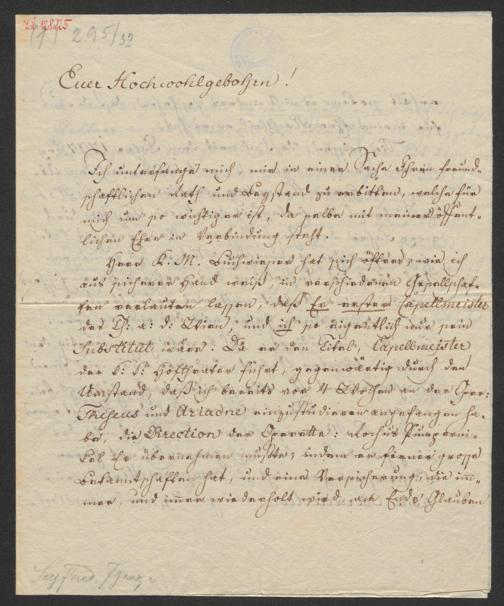 295/32
Euer Hochwohlgebohrn!
Ich unterfange mich, mir in einer Sache Ihren freund-
schaftlichen Rath und Beystand zu erbitten, welche für
mich um so wichtiger ist, da selbe mit meiner öffent-
lichen Ehre in Verbindung steht.
Herr K. M. Buchwieser hat sich öfters, wie ich
aus sicherer Hand weiß, in verschiedenen Gesellschaf-
ten verlauten lassen, daß Er erster Capellmeister
des Th: a: d: Wien, und ich so eigentlich nur sein
Substitut wäre. Da er den Titel, Capellmeister
der k: k: Hoftheater führt, gegenwärtig durch den
Umstand, daß ich bereits vor 4 Wochen an der Oper:
Theseus und Ariadne einzustudieren angefangen ha-
be, die Direction der Operette: Rochus Pumperni-
kel übernehmen mußte; indem er ferner grosse
Bekanntschaften hat, und eine Versicherung, die im-
mer und immer wiederholt wird, am Ende Glauben
Seyfried, Ignaz